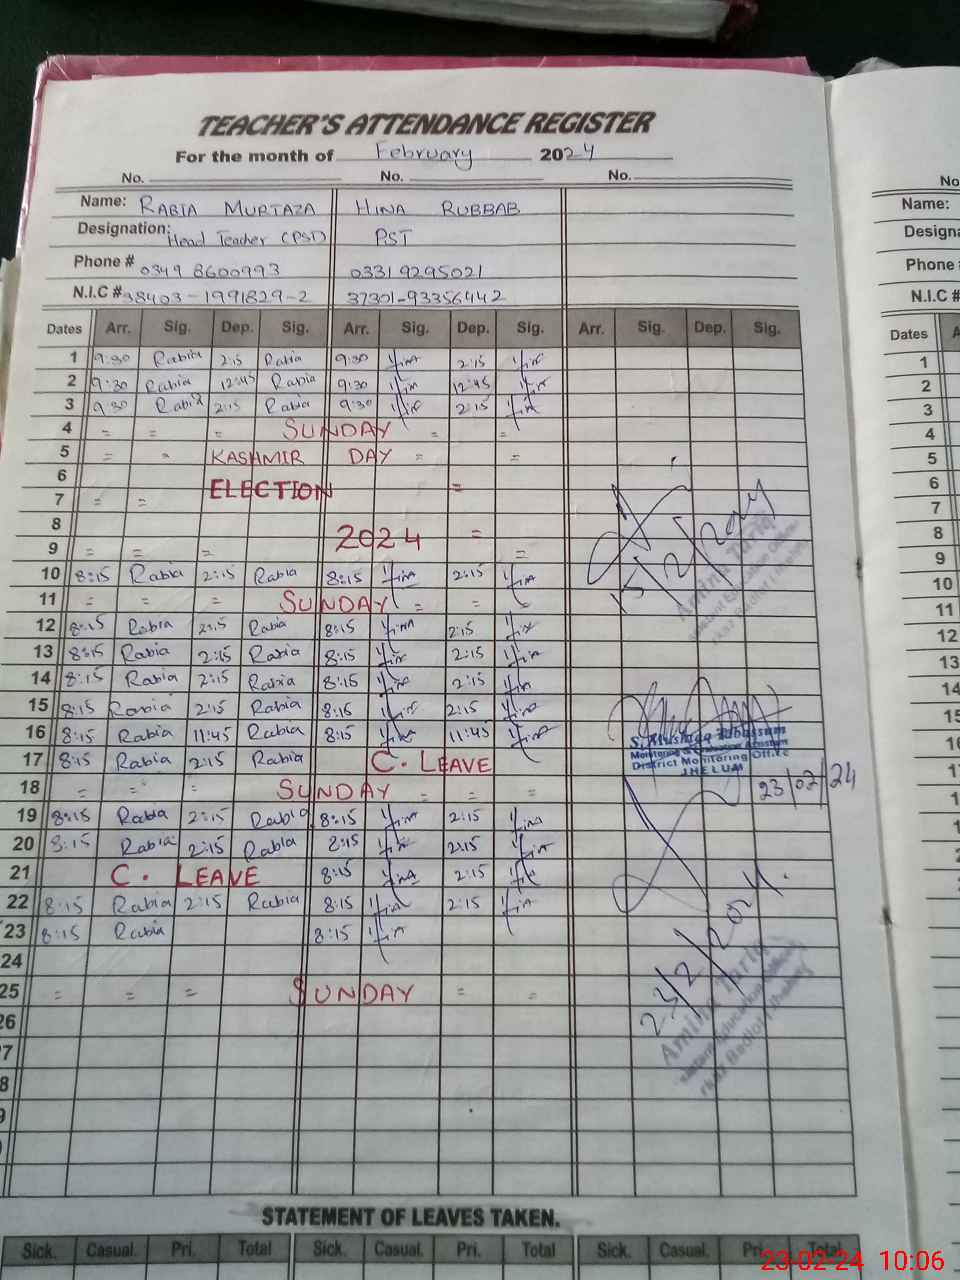 TEACHER'S ATTENDANCE REGISTER
For the month of February 2024
No. No. No.
Name: RABIA MURTAZA HINA RUBBAB
Designation: Head Teacher (PST) PST
Phone # 0349 8600993 03319295021
N.I.C # 38403-1991829-2 37301-93356442
Dates Arr. Sig. Dep. Sig. Arr. Sig. Dep. Sig. Arr. Sig. Dep. Sig.
1 9:30 Rabia 2:15 Rabia 9:30 2:15
2 9:30 Rabia 12:45 Rabia 9:30 12:45
3 9:30 Rabia 2:15 Rabia 9:30 2:15
4 = = = SUNDAY = =
5 = = KASHMIR DAY = =
6
ELECTION =
7 = =
8
2024 =
9 = = = =
10 8:15 Rabia 2:15 Rabia 8:15 2:15
11 = = = SUNDAY = = =
12 8:15 Rabia 2:15 Rabia 8:15 2:15
13 8:15 Rabia 2:15 Rabia 8:15 2:15
14 8:15 Rabia 2:15 Rabia 8:15 2:15
15 8:15 Rabia 2:15 Rabia 8:15 2:15
16 8:15 Rabia 11:45 Rabia 8:15 11:45
17 8:15 Rabia 2:15 Rabia C. LEAVE
18 = = = SUNDAY = = =
19 8:15 Rabia 2:15 Rabia 8:15 2:15
20 8:15 Rabia 2:15 Rabia 8:15 2:15
21 C. LEAVE 8:15 2:15
22 8:15 Rabia 2:15 Rabia 8:15 2:15
23 8:15 Rabia 8:15
24
25 = = = SUNDAY = =
26
7
8
9
15/2/2024
Amina Tariq
S. Mushtaq Tabassum
Monitoring & Evaluation Assistant
District Monitoring Office
JHELUM
23/02/24
23/2/2024.
Amina Tariq
STATEMENT OF LEAVES TAKEN.
Sick. Casual. Pri. Total Sick. Casual. Pri. Total Sick. Casual. Pri. Total
No
Name:
Designa
Phone
N.I.C #
Dates A
1
2
3
4
5
6
7
8
9
10
11
12
13
14
15
16
23-02-24 10:06